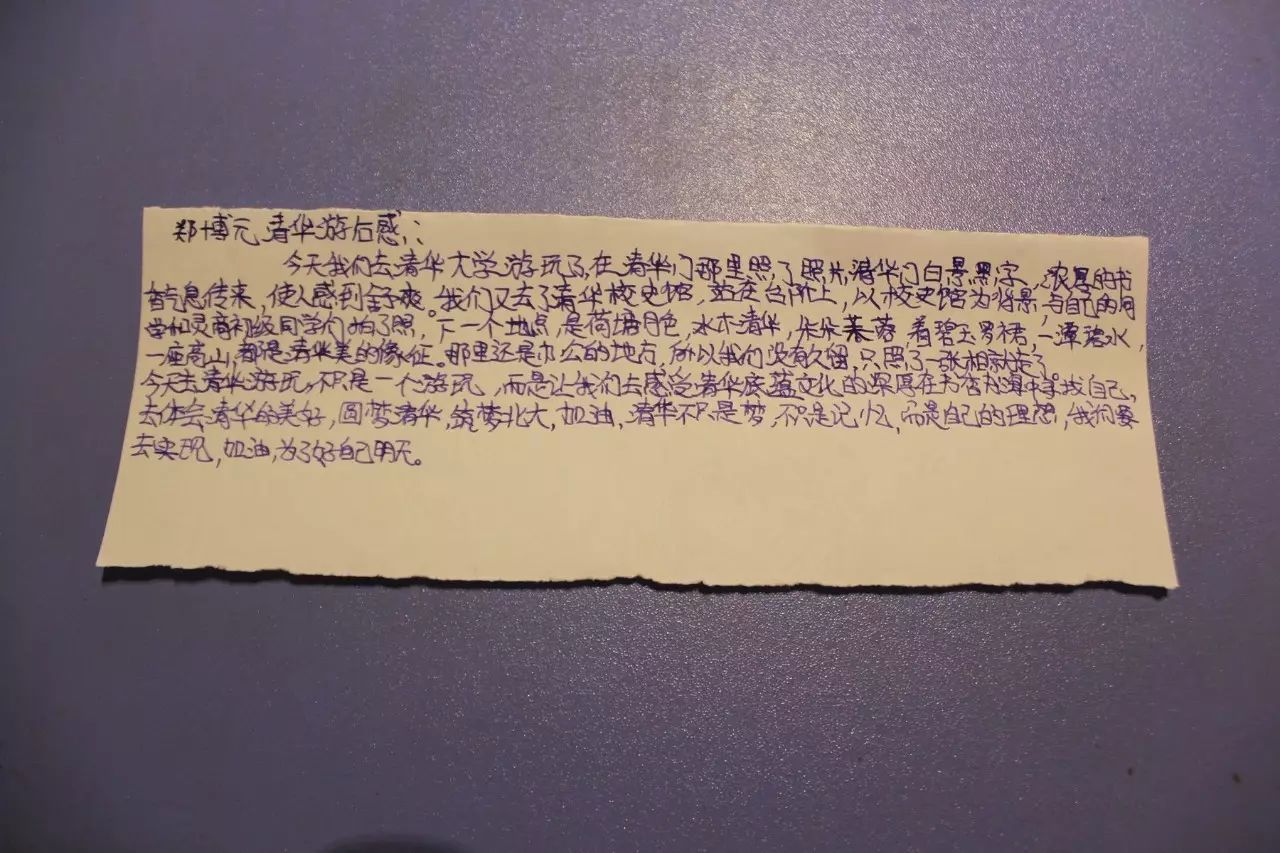 郑博元清华游后感:
今天我们去清华大学游玩了,在清华门那里照了照片,清华门白景黑字,浓厚的书
香气息传来,使人感到舒爽。我们又去了清华校史馆,站在台阶上,以校史馆为背景,与自己的同
学和灵商初级同学们拍了照,下一个地点,是荷塘月色,水木清华,朵朵芙蓉,着碧玉罗裙,一潭碧水,
一座高山,都是清华美的像征。那里还是办公的地方,所以我们没有久留,只照了一张相就走了。
今天去清华游玩,不只是一个游玩,而是让我们去感受清华底蕴文化的深厚在书店书海中寻找自己,
去体会清华的美好,圆梦清华,筑梦北大,加油,清华不只是梦,不只是记忆,而是自己的理想,我们要
去实现,加油,为了好自己明天。